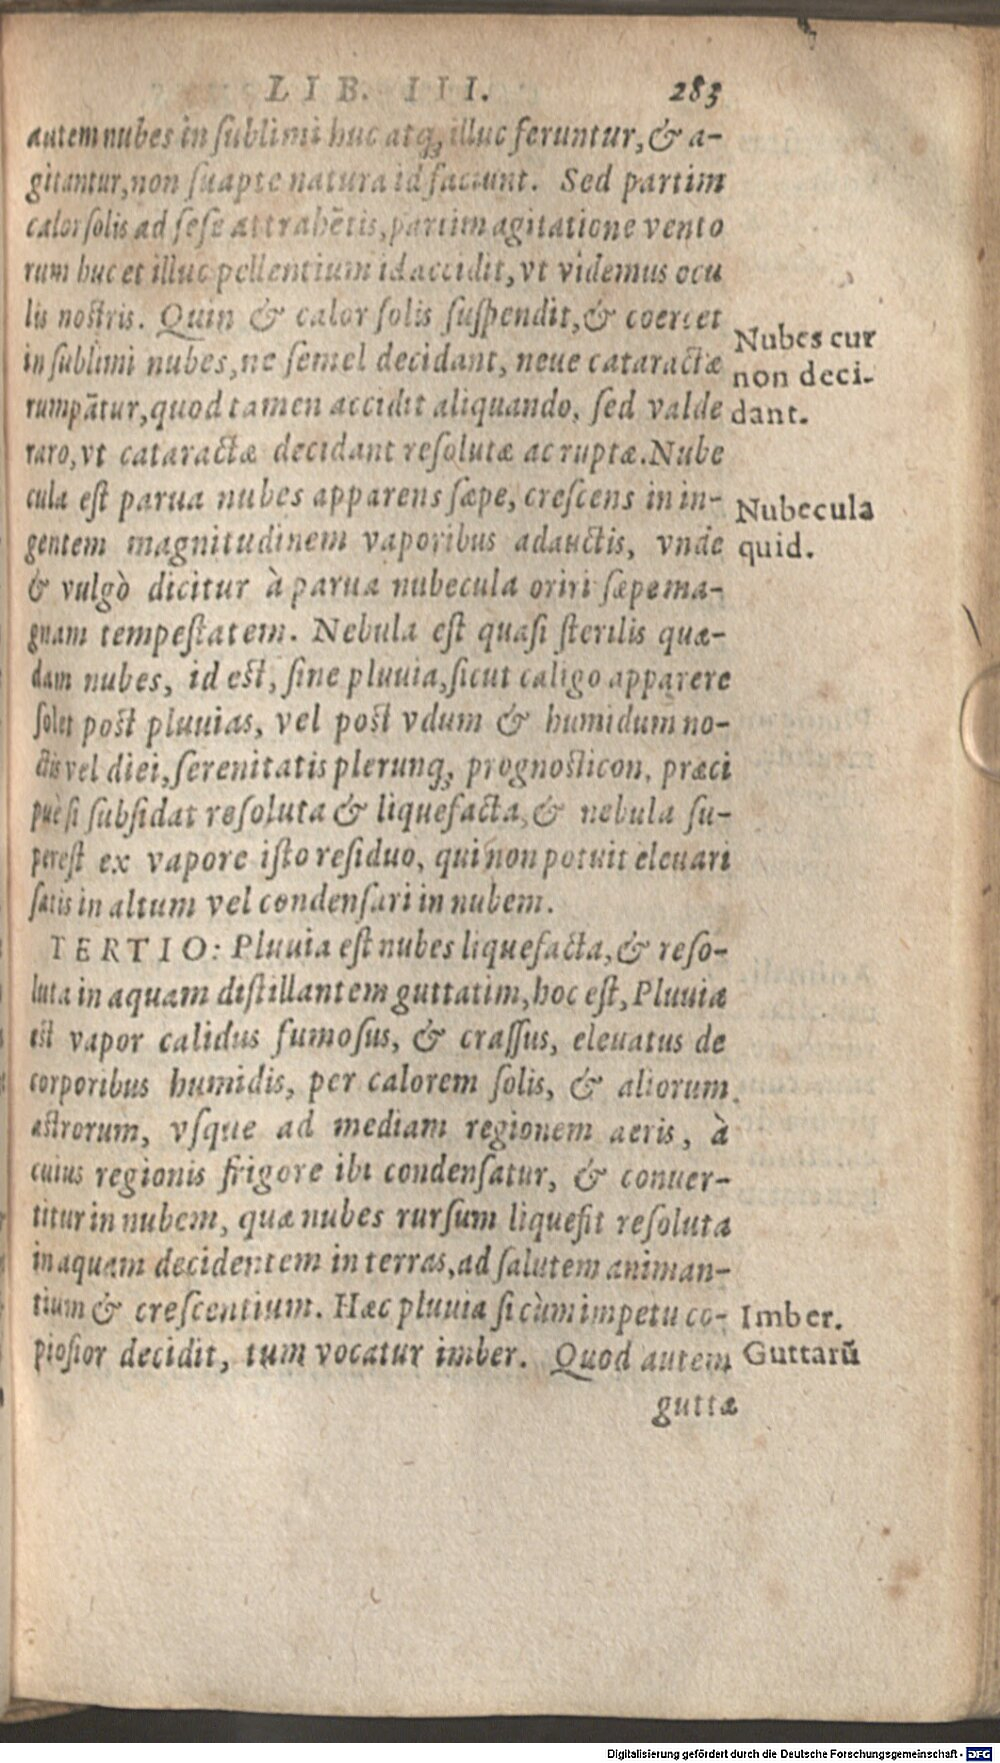 LIB. III. 283
autem nubes in sublimi huc atq; illuc feruntur, & a-
gitantur, non suapte natura id faciunt. Sed partim
calor solis ad sese attrahẽtis, partim agitatione vento
rum huc et illuc pellentium id accidit, vt videmus ocu
lis nostris. Quin & calor solis suspendit, & coercet
in sublimi nubes, ne semel decidant, neue cataractæ
rumpãtur, quod tamen accidit aliquando, sed valde
raro, vt cataractæ decidant resolutæ ac ruptæ. Nube
cula est parua nubes apparens sæpe, crescens in in-
gentem magnitudinem vaporibus adauctis, vnde
& vulgò dicitur à parua nubecula oriri sæpe ma-
gnam tempestatem. Nebula est quasi sterilis quæ-
dam nubes, id est, sine pluuia, sicut caligo apparere
solet post pluuias, vel post vdum & humidum no-
ctis vel diei, serenitatis plerunq; prognosticon, præci
puè si subsidat resoluta & liquefacta, & nebula su-
perest ex vapore isto residuo, qui non potuit eleuari
satis in altum vel condensari in nubem.
TERTIO: Pluuia est nubes liquefacta, & reso-
luta in aquam distillantem guttatim, hoc est, Pluuia
est vapor calidus fumosus, & crassus, eleuatus de
corporibus humidis, per calorem solis, & aliorum
astrorum, vsque ad mediam regionem aeris, à
cuius regionis frigore ibi condensatur, & conuer-
titur in nubem, quæ nubes rursum liquefit resoluta
in aquam decidentem in terras, ad salutem animan-
tium & crescentium. Hæc pluuia si cùm impetu co-
piosior decidit, tum vocatur imber. Quod autem
guttæ
Nubes cur
non deci-
dant.
Nubecula
quid.
Imber.
Guttarũ
Digitalisierung gefördert durch die Deutsche Forschungsgemeinschaft - DFG